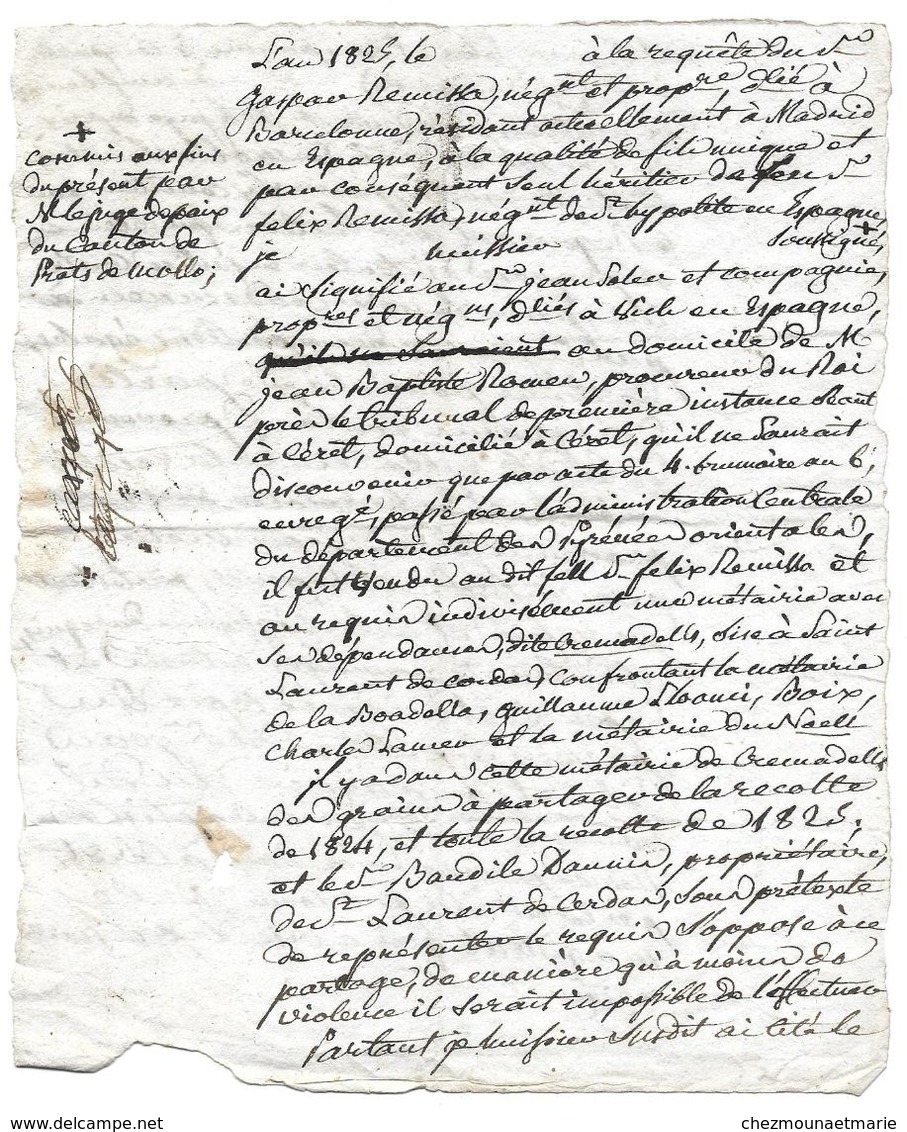 L'an 1825, le à la requête du Sr
Gaspar Remissa, négnt et propre, dlié à
Barcelonne, résidant actuellement à Madrid
en Espagne, à la qualité de fils unique et
par conséquent seul héritier de feu Sr
felix Remissa, négnt de St hypolite en Espagne,
je huissier soussigné, +
+
commis aux fins
du présent par
Mr le juge de paix
du Canton de
Prats de mollo;
ai signifié au Sr jean Soler et compagnie,
propres et négns, dliés à Vich en Espagne,
qu'il ne sauraient au domicile de M
jean Baptiste Romeu, procureur du Roi
près le tribunal de première instance séant
à Céret, domicilié à Céret, qu'il ne saurait
disconvenir que par acte du 4 brumaire an 6,
enregé, passé par l'administration Centrale
du département des pyrénées orientales,
il fut vendu au dit feu Sr felix Remissa et
au requis indivisément une métairie avec
ses dépendances, dite Cremadells, sise à Saint
Laurent de cerdans, confrontant la métairie
de la Boadella, guillaume Boix,
Charles et la métairie du Noell
il y a dans cette métairie de Cremadells
des grains à partager de la recolte
de 1824, et toute la recolte de 1825.
et le Sr Baudile Daunis, propriétaire,
de St Laurent de Cerdans, sous prétexte
de représenter le requis s'oppose à ce
partage, de manière qu'à moins de
violence il serait impossible de l'effectuer
Partant je huissier susdit ai cité le
chezmounaetmarie